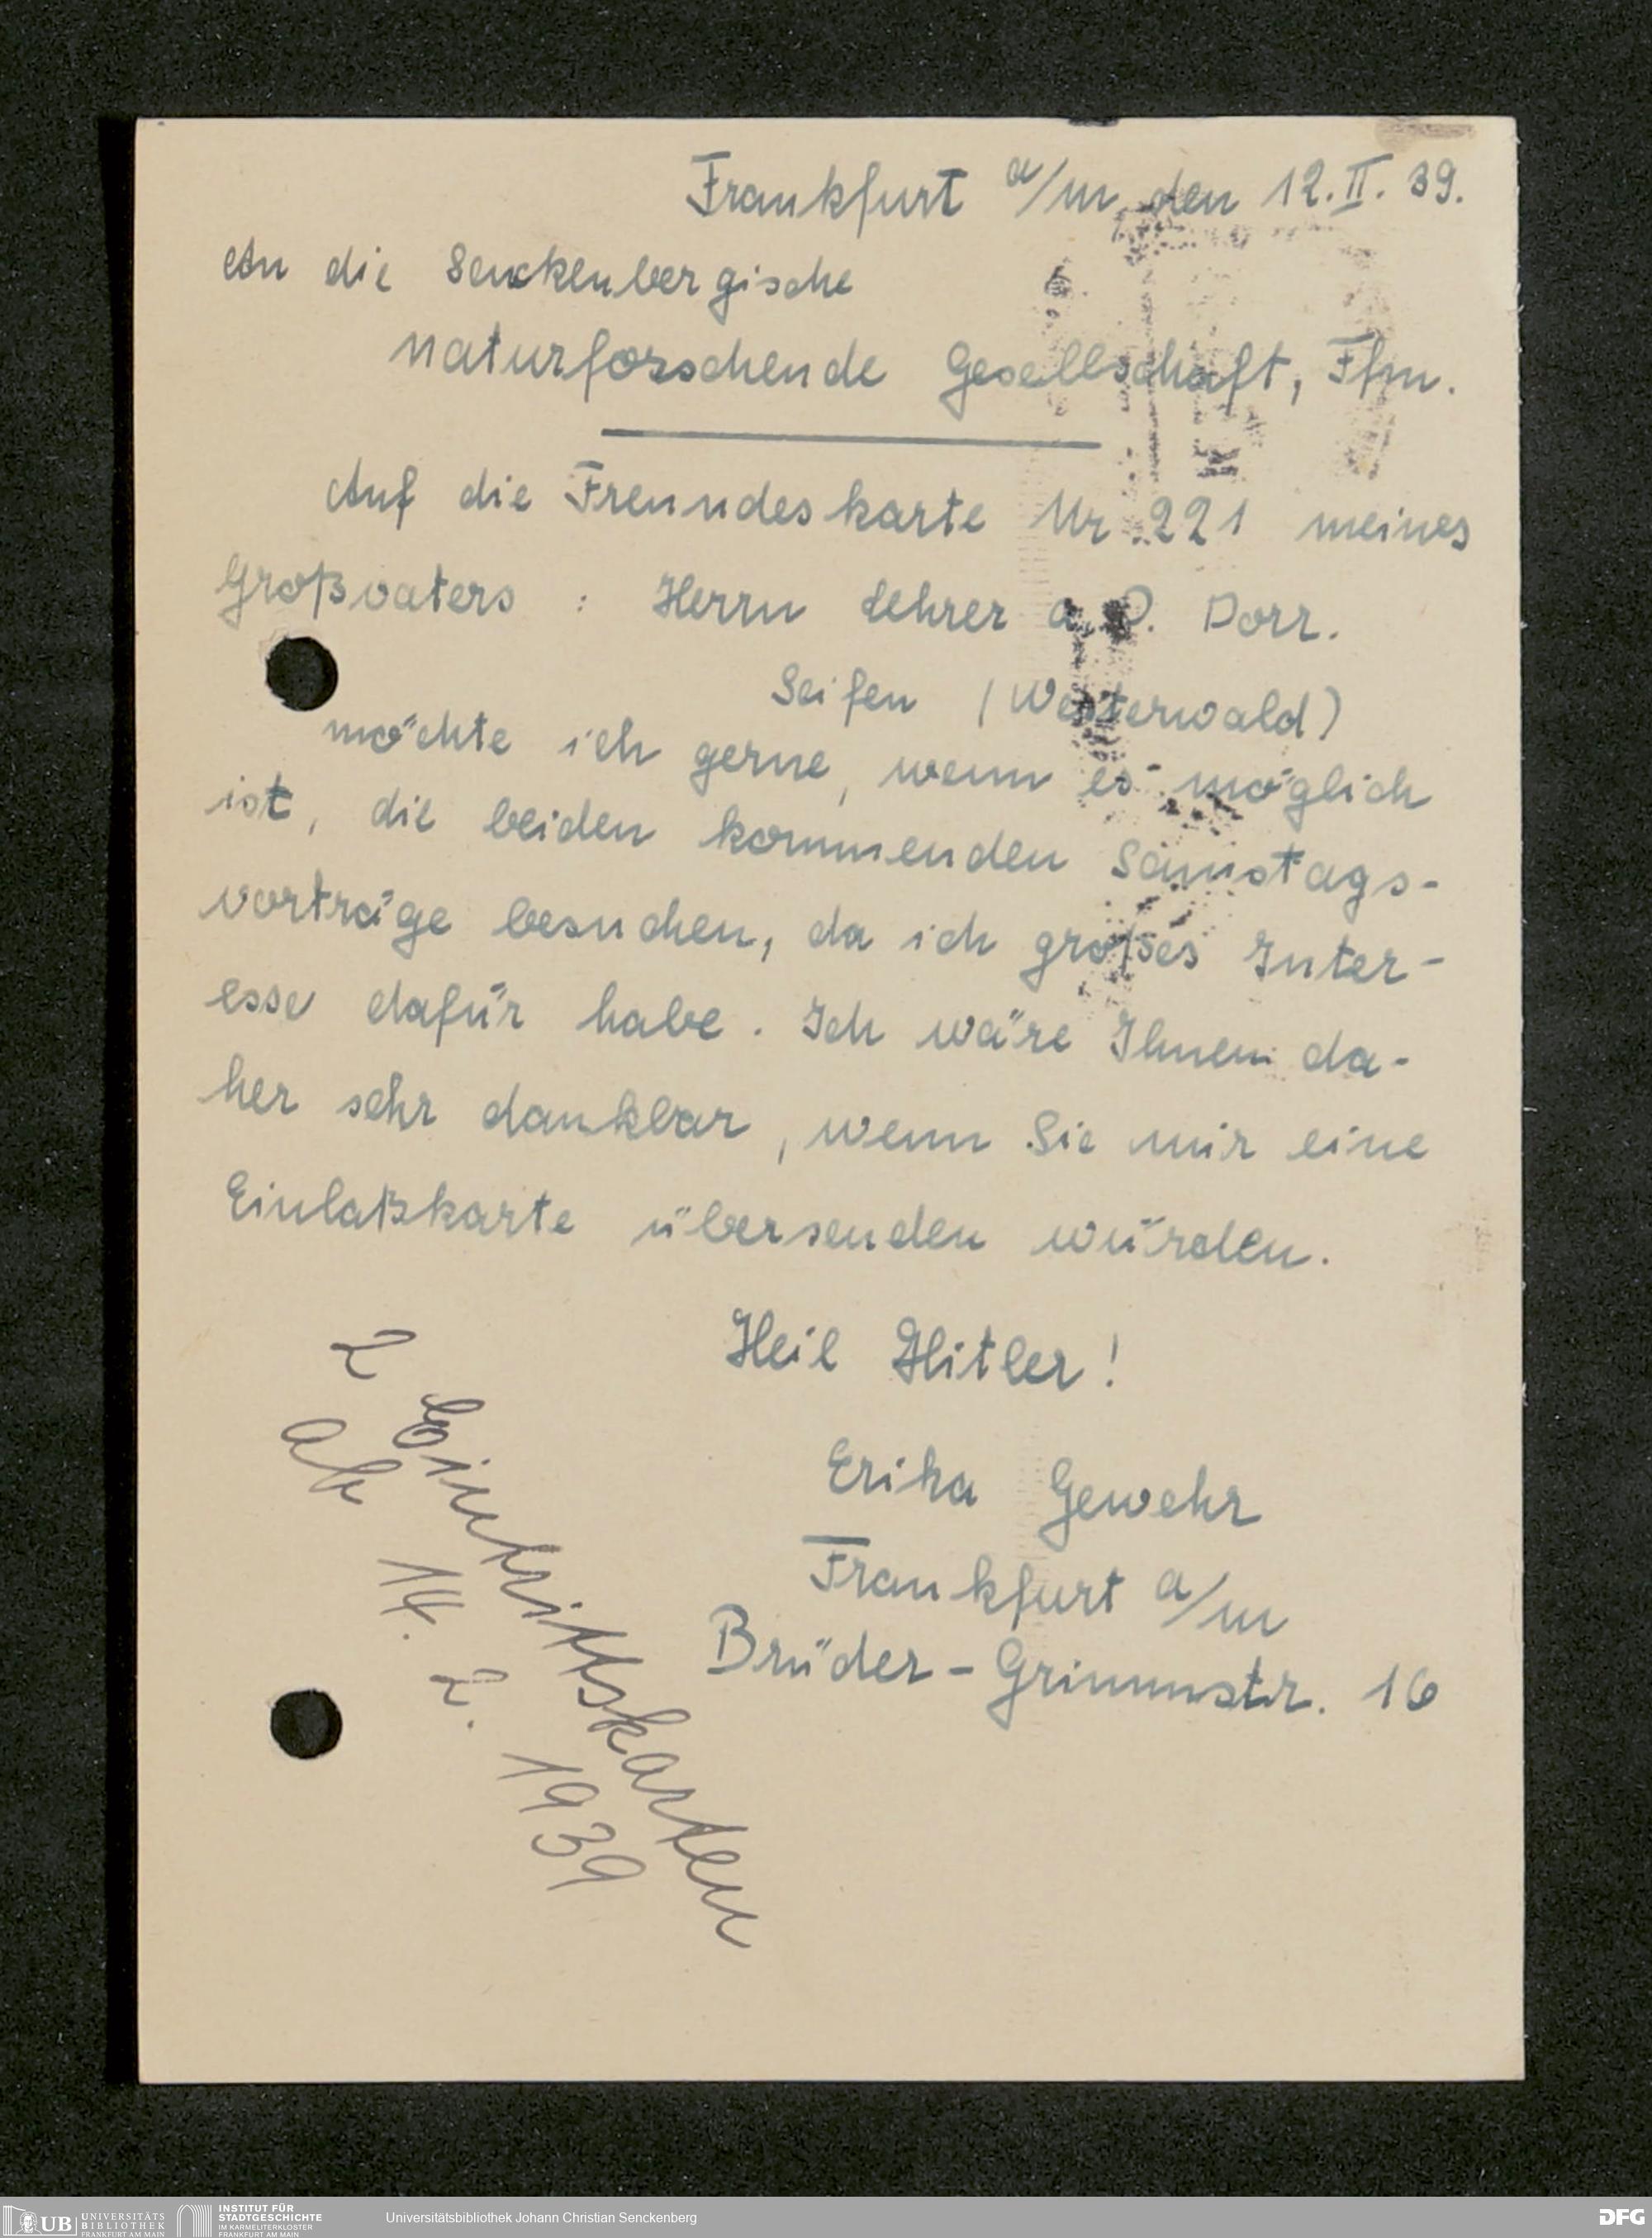 Frankfurt a/m, den 12.II.39.
An die Senckenbergische
naturforschende Gesellschaft, Ffm.
Auf die Freundeskarte Nr. 221 meines
Großvaters : Herrn Lehrer a.D. Dorr.
Seifen (Westerwald)
möchte ich gerne, wenn es möglich
ist, die beiden kommenden Samstags-
vorträge besuchen, da ich großes Inter-
esse dafür habe. Ich wäre Ihnen da-
her sehr dankbar, wenn Sie mir eine
Einlaßkarte übersenden würden.
Heil Hitler!
Erika Gewehr
Frankfurt a/m
Brüder-Grimmstr. 16
2 Eintrittskarten
ab 14. 2. 1939
UB UNIVERSITÄTS
BIBLIOTHEK
FRANKFURT AM MAIN
INSTITUT FÜR
STADTGESCHICHTE
IM KARMELITERKLOSTER
FRANKFURT AM MAIN
Universitätsbibliothek Johann Christian Senckenberg
DFG